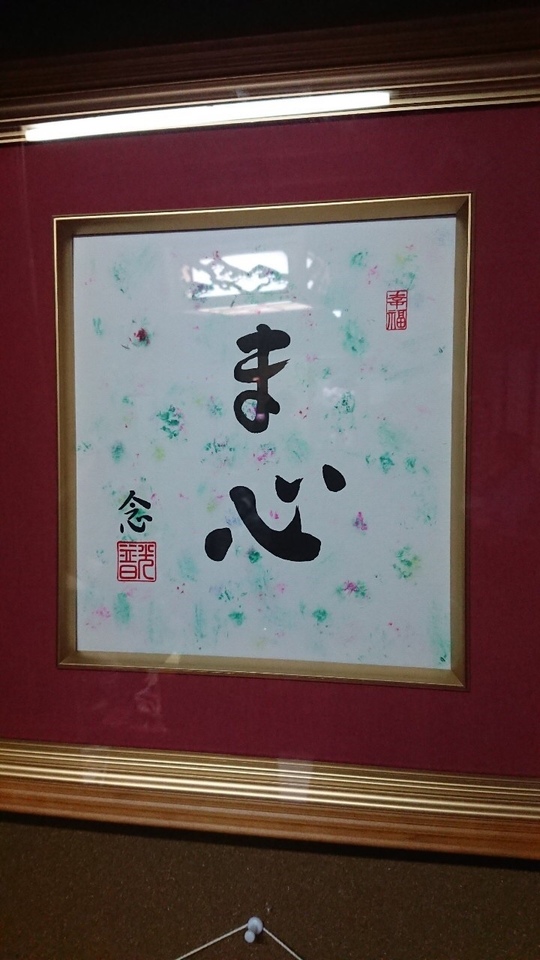 幸福
ま心
念